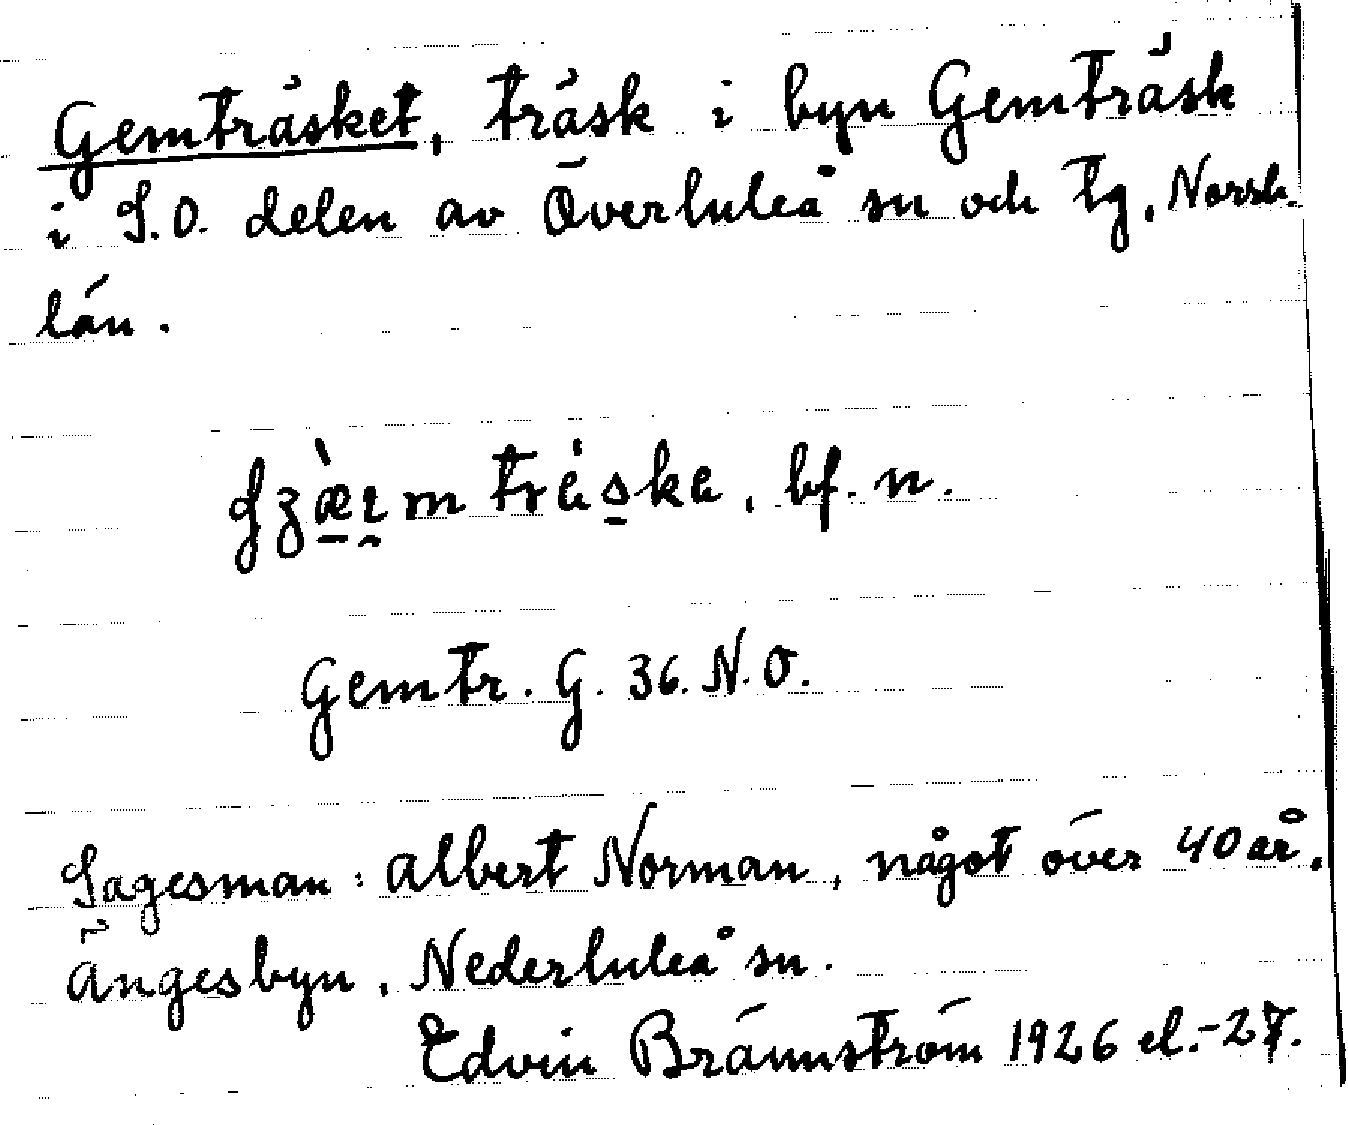 Gemträsket, träsk i byn Gemträsk
i S.O. delen av Överluleå sn och tg, Norrb.
län.
bf. n.
Gemtr. G. 36. N.O.
Sagesman: Albert Norman, något över 40 år,
Ängesbyn, Nederluleå sn.
Edvin Brännström 1926 el.-27.